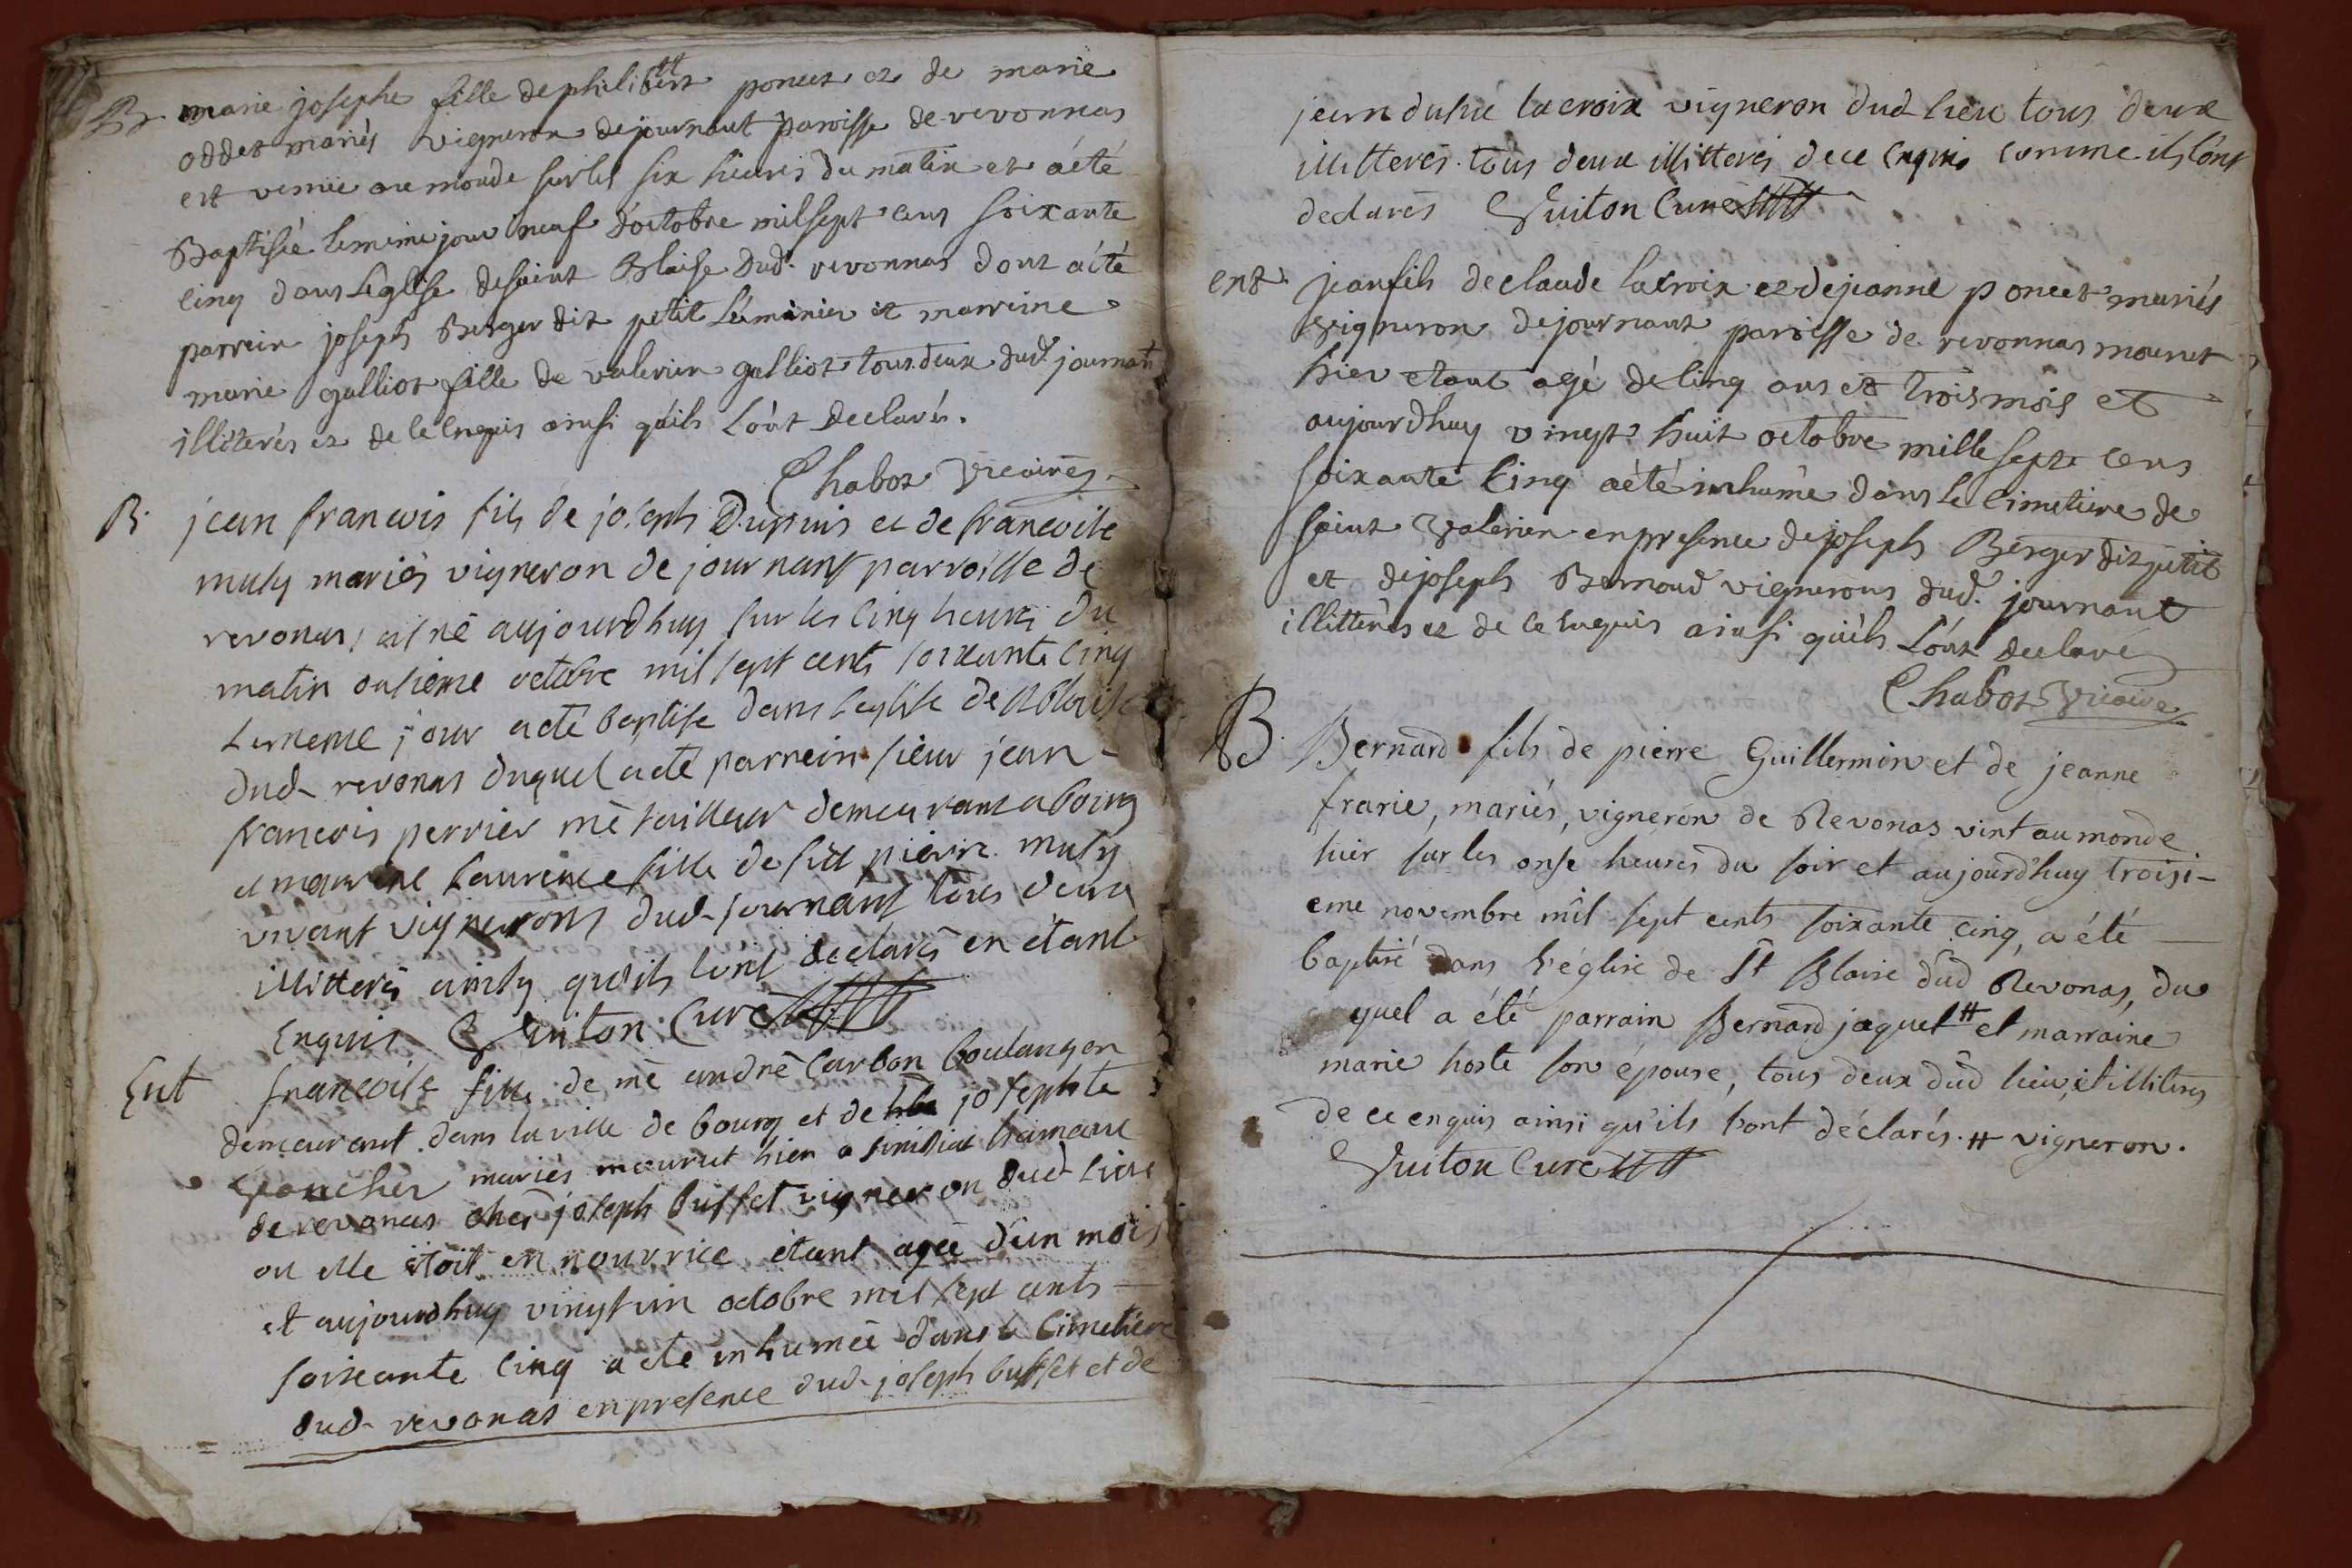 B. marie josephe fille de philibertt poncet et de marie
oddet mariés vigneron de journant paroisse de revonnas
est venüe au monde sur les six heures du matin et a été
Baptisée le même jour neuf d'octobre mil sept cens soixante
cinq dans l'eglise de saint Blaise dud. revonnas dont a été
parrein joseph Berger dit petit et marreine
marie galliot fille de valerien galliot tous deux dud. journan
illiterés et de ce enquis ainsi qu'ils l'ont declaré.
Chabot Vicaire
B. jean francois fils de joseph Dupuis et de francoise
muly mariés vigneron de journant parroisse de
revonas, est né aujourdhuy sur les cinq heures du
matin onsieme octobre mil sept cents soixante cinq
le meme jour a été baptise dans l'eglise de st blaise
dud. revonas duquel a été parrein sieur jean
francois perrier me tailleur demeurant a bourg
et marreine laurence fille de feu pierre muly
vivant vignerons dud. journant tous deux
illitterés ainsy qu'ils l'ont declarés en étant
enquis Guiton Curé
Ent francoise fille de me andré Carbon boulanger
demeurant dans la ville de bourg et de josephte
mariés mourut hier a hameau
de revonas chés joseph buffet vigneron dud. lieu
ou elle étoit en nourrice étant agée d'un mois
et aujourdhuy vingt un octobre mil sept cents
soixante cinq a été inhumée dans le cimetière
dud. revonas en presence dud. joseph buffet et de
jean lacroix vigneron dud. lieu tous deux
illitterés. tous deux illitterés de ce enquis comme ils l'ont
declarés Guiton Curé
ent. jean fils de claude lacroix et de jeanne poncet mariés
vigneron de journant paroisse de revonnas mourut
hier etant agé de cinq ans et trois mois et
aujourdhuy vingt huit octobre mille sept cens
soixante cinq a été inhumé dans le cimetiere de
saint Valerien en presence de joseph Berger dit petit
et de joseph Bernoud vignerons dud. journant
illitterés et de ce enquis ainsi qu'ils l'ont declaré
Chabot Vicaire
B. Bernard fils de pierre Guillermin et de jeanne
frarie, mariés, vigneron de Revonas vint au monde
hier sur les onse heures du soir et aujourd'huy troisi-
eme novembre mil sept cents soixante cinq, a été
baptisé dans l'église de St Blaise dud Revonas, du
quel a été parrain Bernard jaquet # et marraine
marie hoste son épouse, tous deux dud lieu, et illiterés
de ce enquis ainsi qu'ils l'ont déclarés. # vigneron.
Guiton Curé